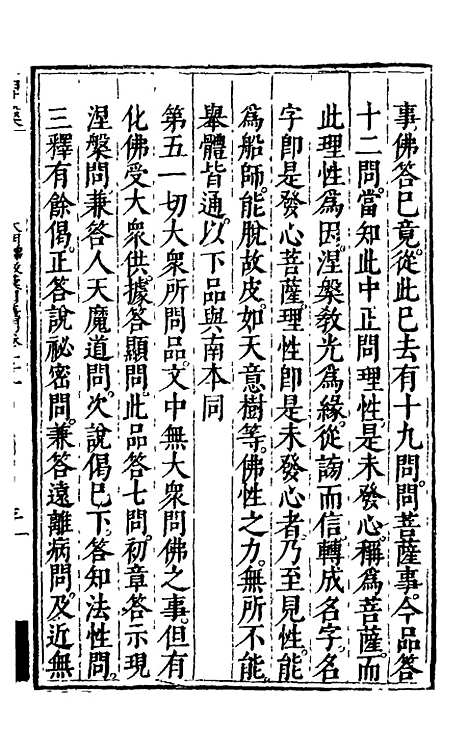 事佛答已竟從此已去有十九問問菩薩事今品答
十二問當知此中正問理性是未發心稱為菩薩而
此理性為因涅槃教光為緣從謗而信轉成名字名
字即是發心菩薩理性即是未發心者乃至見性能
為船師能脫故皮如天意樹等佛性之力無所不能
舉體皆通以下品與南本同
第五一切大眾所問品文中無大眾問佛之事但有
化佛受大眾供據答顯問此品答七問初章答示現
涅槃問兼答人天魔道問次說偈已下答知法性問
三釋有餘偈正答說祕密問兼答遠離病問及近無